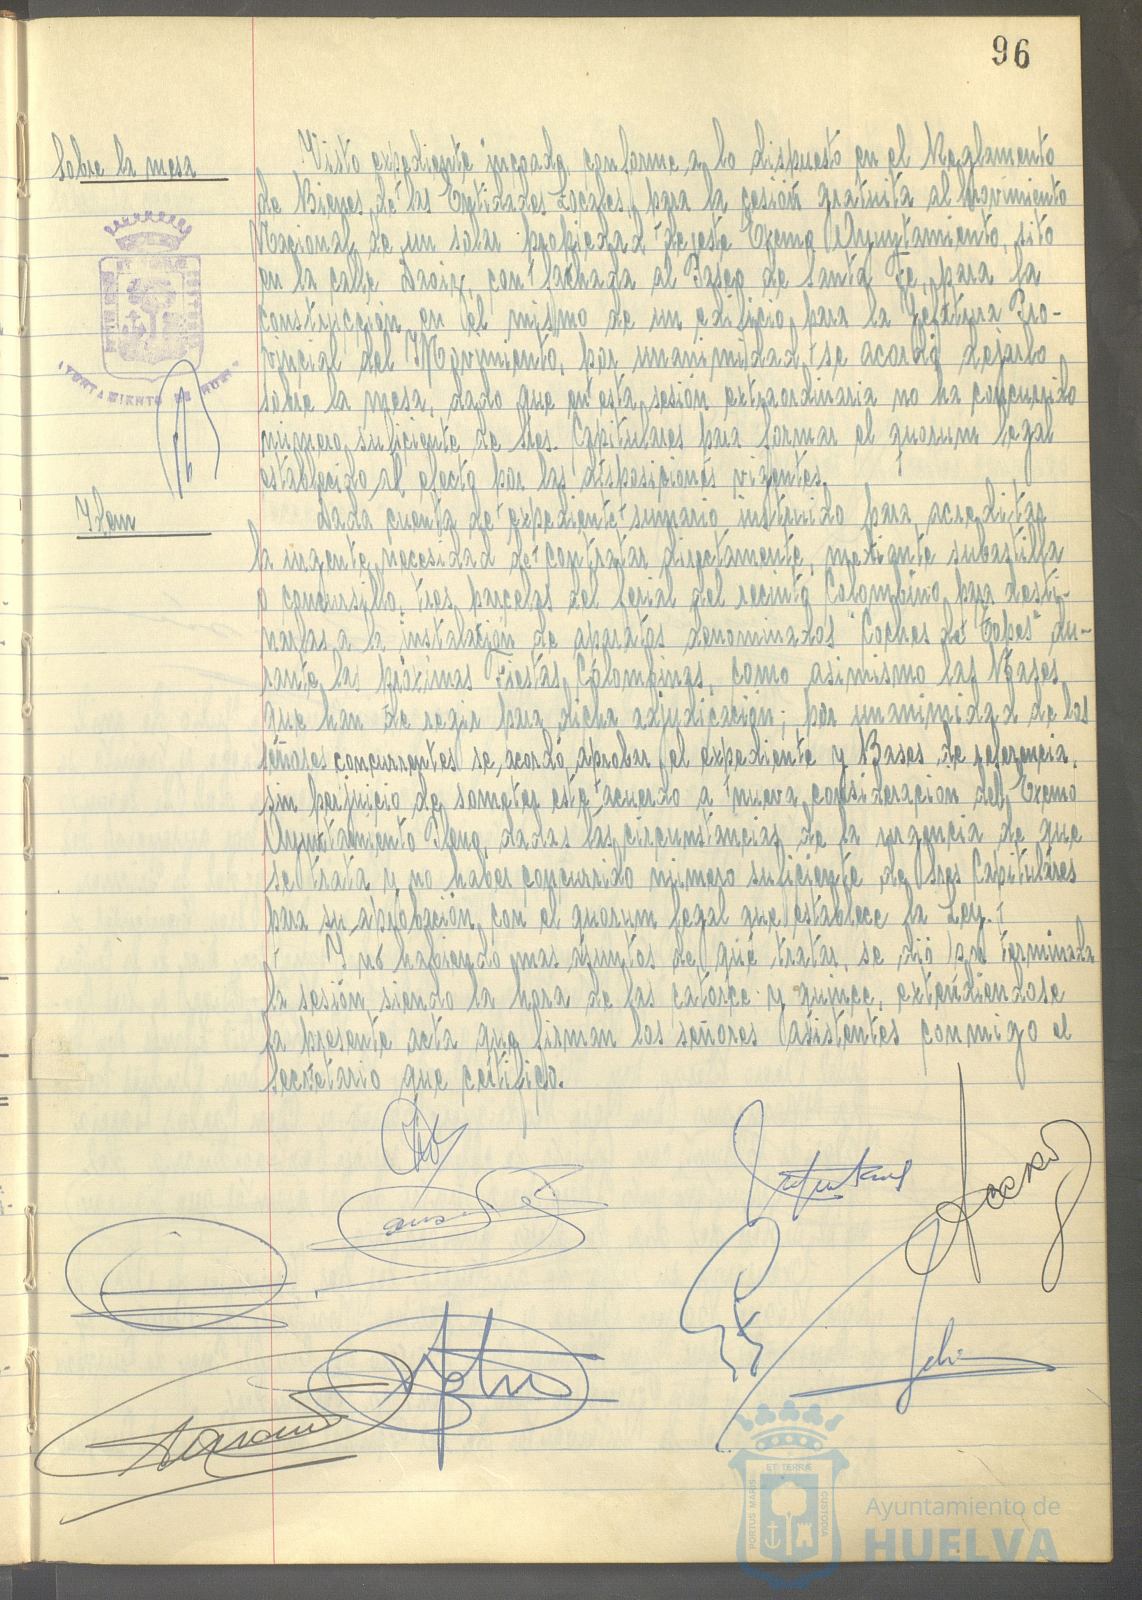 96
Sobre la mesa
Visto expediente incoado, conforme a lo dispuesto en el Reglamento
de Bienes de las Entidades Locales, para la cesión gratuita al Movimiento
Nacional de un solar propiedad de este Excmo Ayuntamiento, sito
en la calle Daoiz, con fachada al Paseo de Santa Fe, para la
construcción en el mismo de un edificio para la Jefatura Pro-
vincial del Movimiento, por unanimidad se acordó dejarlo
sobre la mesa, dado que en esta sesión extraordinaria no ha concurrido
número suficiente de Sres. Capitulares para formar el quorum legal
establecido al efecto por las disposiciones vigentes.
Idem
Dada cuenta de expediente sumario instruido para acreditar
la urgente necesidad de contratar directamente, mediante subastilla
o concursillo, tres parcelas del ferial del recinto Colombino para desti-
narlas a la instalación de aparatos denominados "Coches de Topes" du-
rante las próximas Fiestas Colombinas, como asimismo las Bases
que han de regir para dicha adjudicación; por unanimidad de los
señores concurrentes se acordó aprobar el expediente y Bases de referencia,
sin perjuicio de someter este acuerdo a nueva consideración del Excmo
Ayuntamiento Pleno, dadas las circunstancias de la urgencia de que
se trata y no haber concurrido número suficiente de Sres Capitulares
para su aprobación con el quorum legal que establece la Ley.
Y no habiendo mas asuntos de que tratar, se dió por terminada
la sesión siendo la hora de las catorce y quince, extendiendose
la presente acta que firman los señores asistentes conmigo el
Secretario que certifico.
PORTUS MARIS ET TERRÆ CUSTODIA
Ayuntamiento de
HUELVA